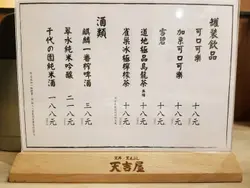 罐装飲品
可口可樂 十八元
可口可樂 十八元
雪碧 十八元
道地極品烏龍茶 十八元
雀巢冰極檸檬茶 十八元
酒類
麒麟一番榨啤酒 三八元
翠水純米吟釀 二一八元
千代の園純米酒 一八八元
天吉屋